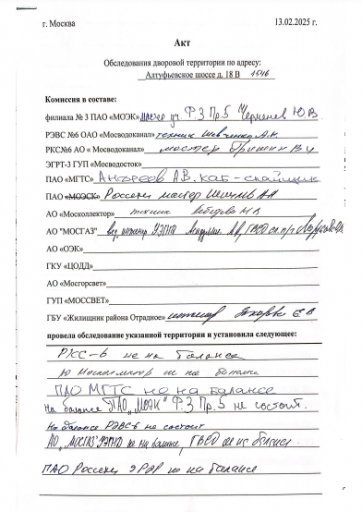 г. Москва 13.02.2025 г.
Акт
Обследования дворовой территории по адресу:
Алтуфьевское шоссе д. 18 В
Комиссия в составе:
филиала № 3 ПАО «МОЭК» мастер уч. Ф.3 Пр.5 Черненов Ю.В.
РЭВС №6 ОАО «Мосводоканал» техник Шевченко А.Н.
РКС№6 АО « Мосводоканал» мастер Гришин В.И.
ЭГРТ-3 ГУП «Мосводосток»
ПАО «МГТС» Андреев А.В. каб-спайщик
ПАО «МОЭСК» Россети мастер
АО «Москоллектор» техник Лебедева М.А.
АО "МОСГАЗ" вед инженер
АО «ОЭК»
ГКУ «ЦОДД»
АО «Мосгорсвет»
ГУП «МОССВЕТ»
ГБУ «Жилищник района Отрадное» инженер
провела обследование указанной территории и установила следующее:
РКС-6 не на балансе
АО Москоллектор не на балансе
ПАО МГТС не на балансе
На балансе ПАО "МОЭК" Ф.3 Пр.5 не состоит.
На балансе РЭВС-6 не состоит
АО "МОСГАЗ" не на балансе,
ПАО Россети не на балансе